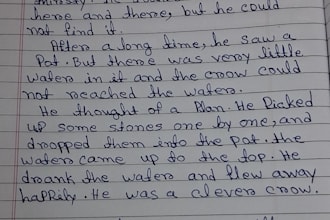 here and there, but he could
not find it.
After a long time, he saw a
Pot. But there was very little
water in it and the crow could
not reached the water.
He thought of a Plan. He Picked
up some stones one by one, and
dropped them into the pot. the
water came up to the top. He
drank the water and flew away
happily. He was a clever crow.